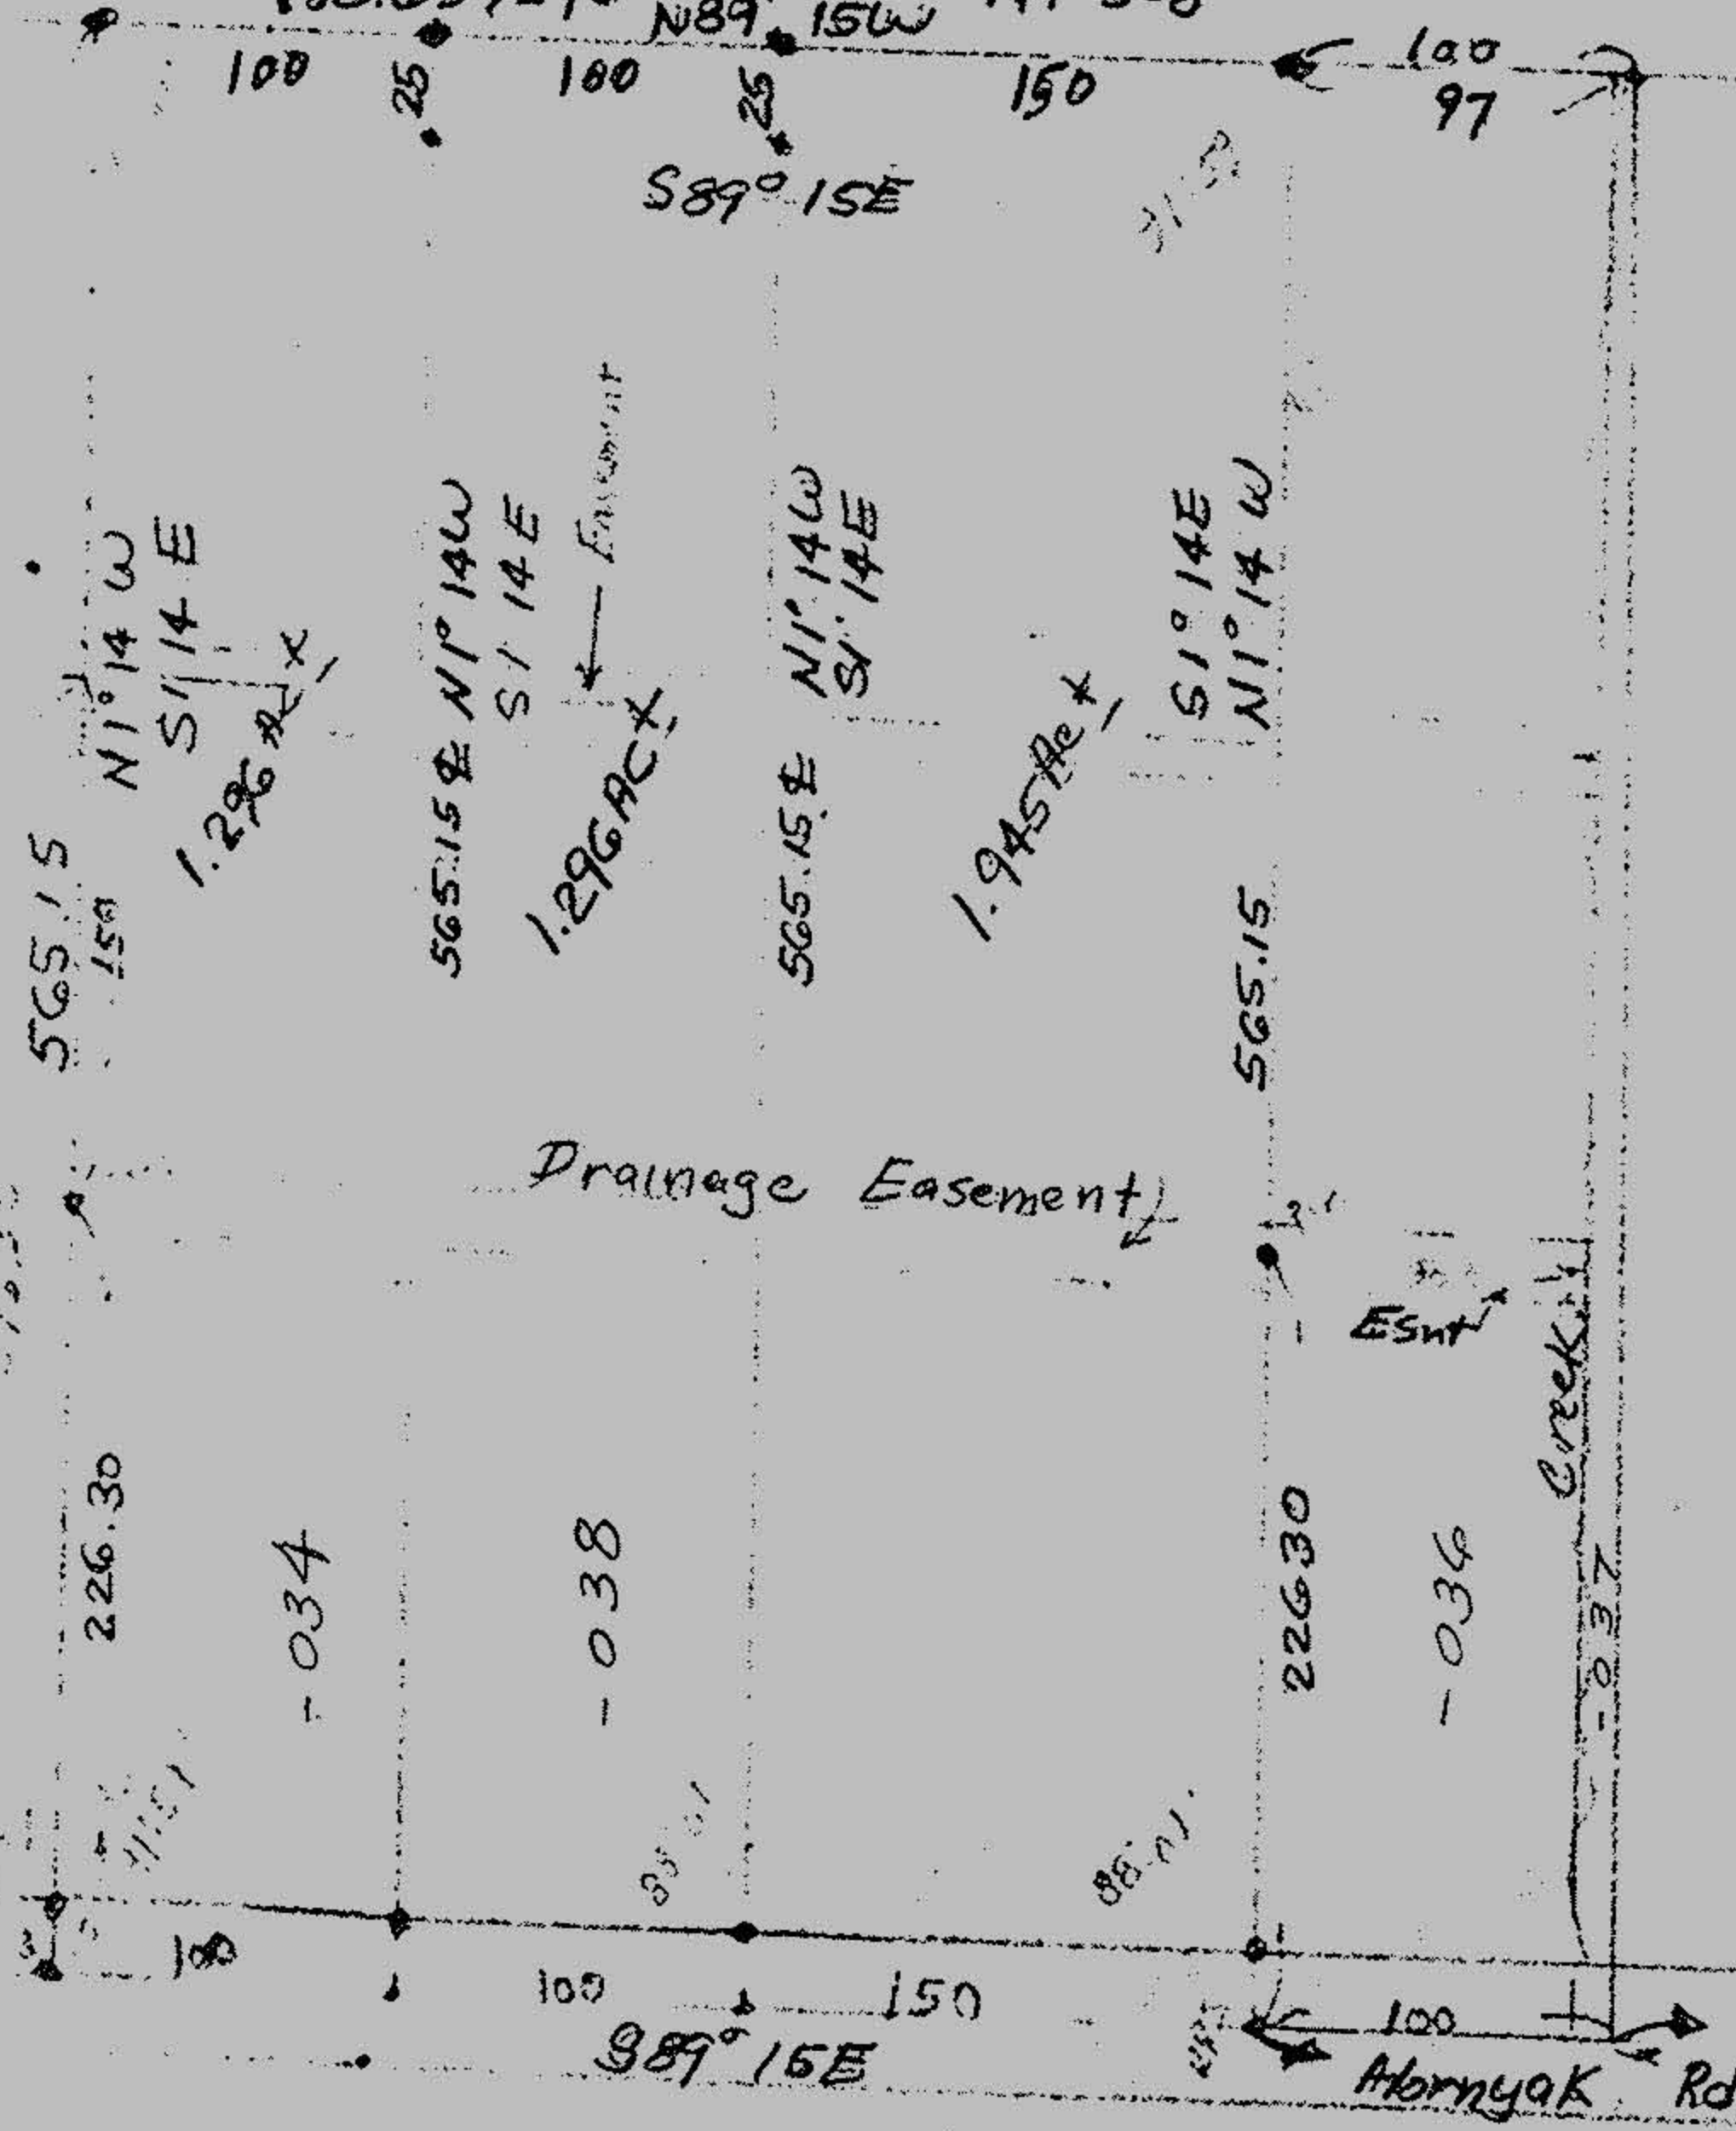 N89° 15W
100
25
100
25
150
100
97
S89° 15E
N1° 14 W
S1 14 E
565.15
150
N1° 14W
S1 14 E
565.15 ±
1.296 AC ±
Easement
N1° 14W
S1° 14E
565.15 ±
1.945 Ac ±
S1° 14E
N1° 14 W
565.15
Drainage Easement
Esmt
Creek
226.30
-034
-038
226 30
-036
-037
88° 01'
100
100
150
100
S89° 15E
Hornyak Rd